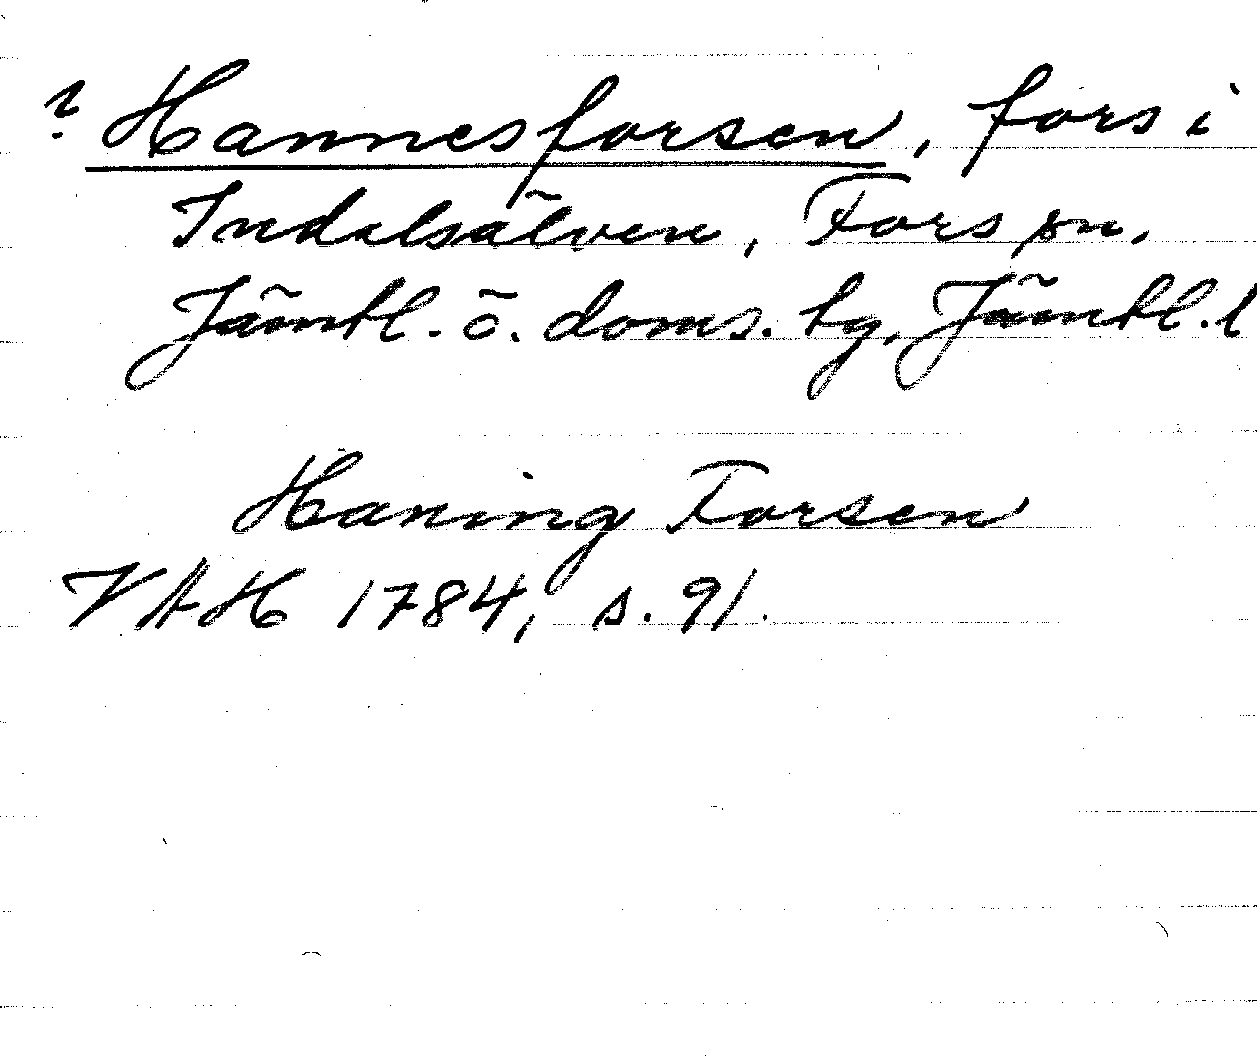 ? Hannesforsen, fors i
Indalsälven, Fors sn,
Jämtl. ö. doms. tg, Jämtl. l
Haning Forsen
VAH 1784, s. 91.